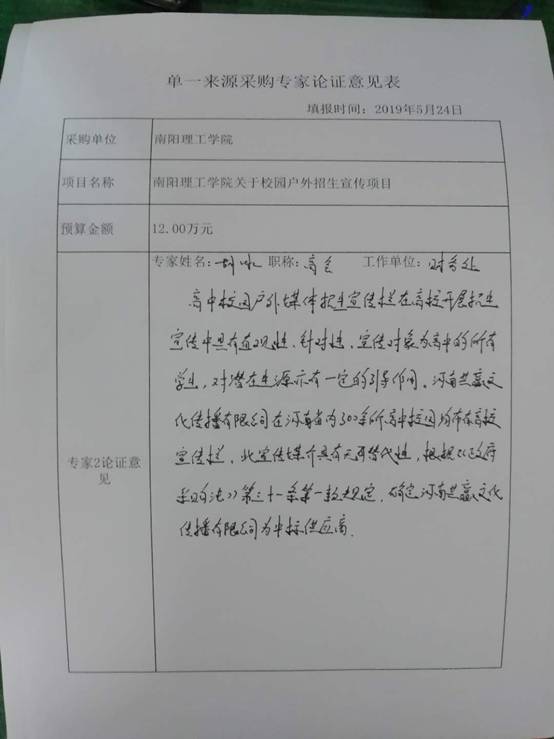 单一来源采购专家论证意见表
填报时间：2019年5月24日
采购单位 南阳理工学院
项目名称 南阳理工学院关于校园户外招生宣传项目
预算金额 12.00万元
专家姓名： 职称：高会 工作单位：财务处
专家2论证意见
高中校园户外媒体招生宣传栏在高校开展招生
宣传中具有直观性、针对性，宣传对象为高中的所有
学生，对潜在生源亦有一定的引导作用。河南共赢文
化传播有限公司在河南省内300余所高中校园均布有高校
宣传栏，此宣传媒介具有不可替代性，根据《政府
采购法》第三十一条第一款规定，确定河南共赢文化
传播有限公司为中标供应商。